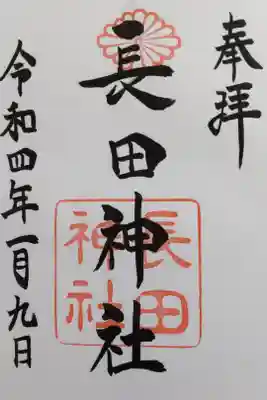 奉拝
長田神社
長田
神社
令和四年一月九日